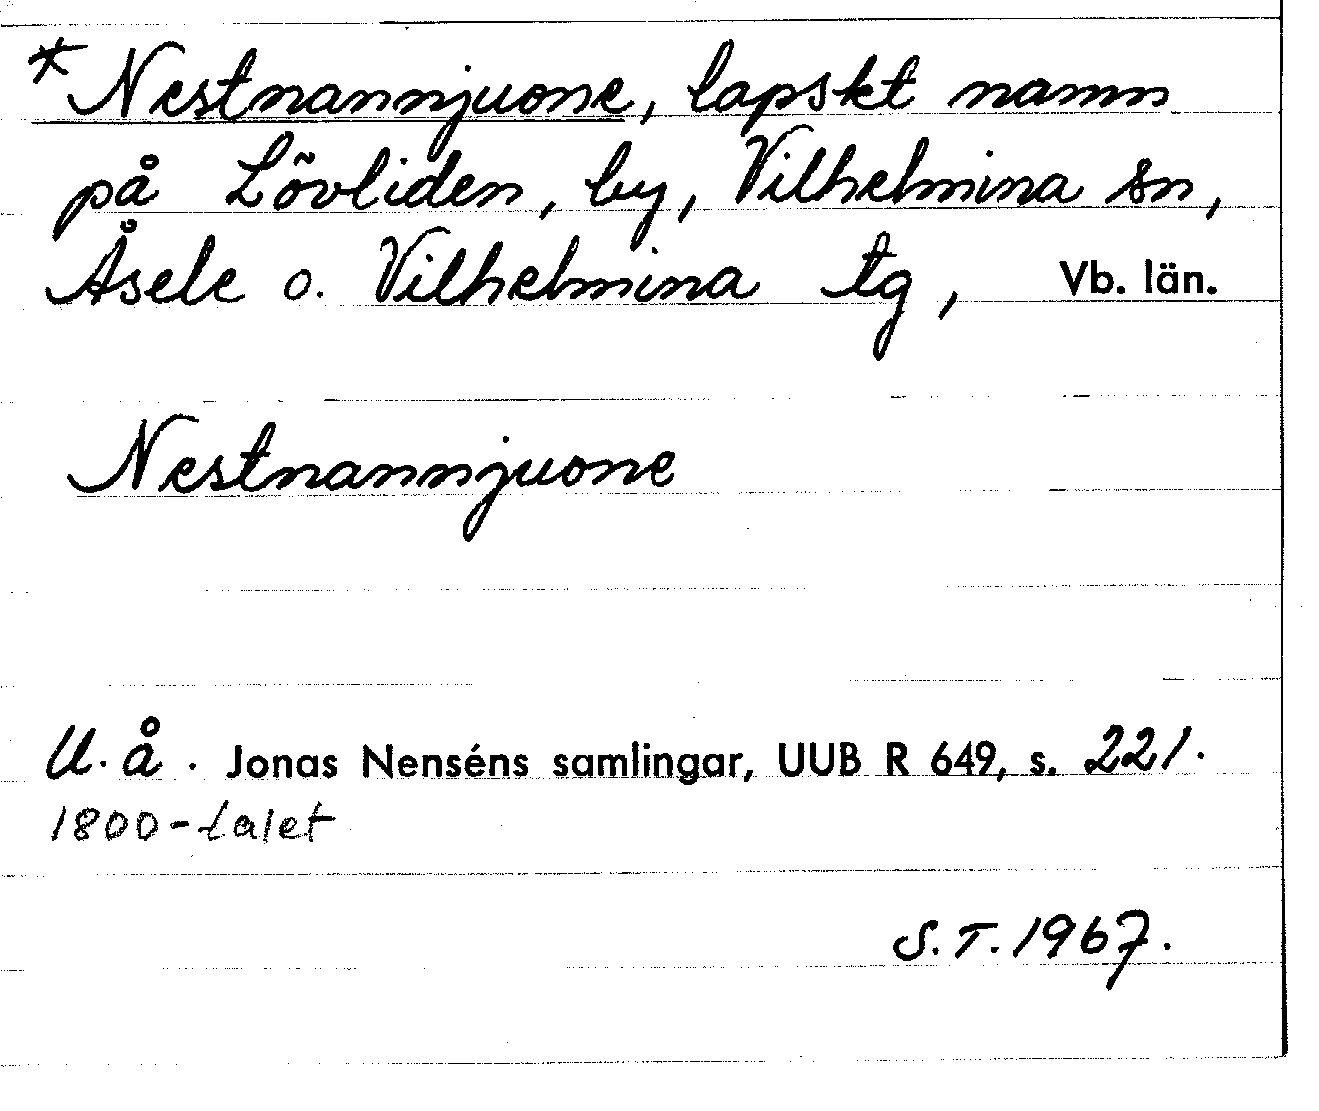 *Nestnannjuone, lapskt namn
på Lövliden, by, Vilhelmina sn,
Åsele o. Vilhelmina tg, Vb. län.
Nestnannjuone
U. å. Jonas Nenséns samlingar, UUB R 649, s. 221.
1800-talet
S.T. 1967.